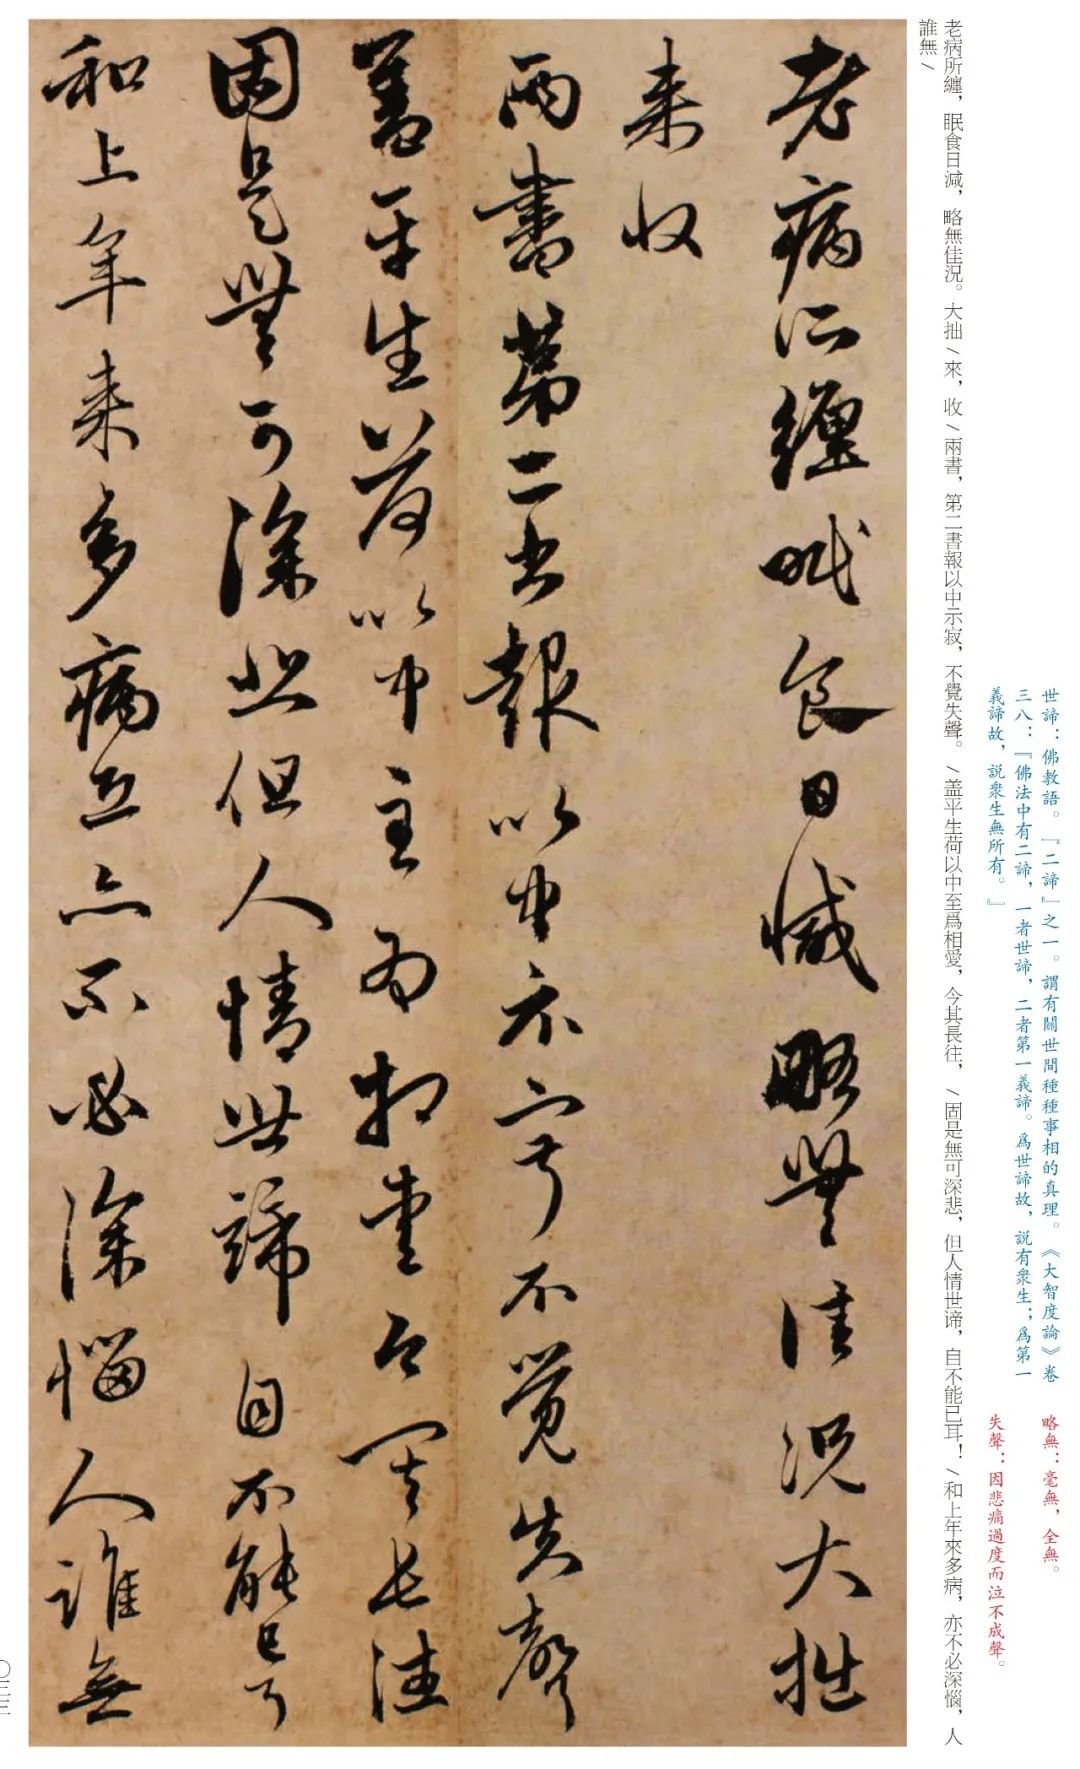 世諦：佛教語。『二諦』之一。謂有關世間種種事相的真理。《大智度論》卷
三八：『佛法中有二諦，一者世諦，二者第一義諦。爲世諦故，説有衆生；爲第一
義諦故，説衆生無所有。』
略無：毫無，全無。
失聲：因悲痛過度而泣不成聲。
老病所纏，眠食日減，略無佳況。大拙/來，收/兩書，第二書報以中示寂，不覺失聲。/盖平生荷以中至爲相愛，今其長往，/固是無可深悲，但人情世谛，自不能已耳！/和上年來多病，亦不必深惱，人
誰無/
老病所纏眠食日減略無佳況大拙
来收
兩書第二書報以中示寂不覺失聲
蓋平生荷以中至為相愛今其長往
固是無可深悲但人情世諦自不能已耳
和上年来多病亦不必深惱人誰無
〇三三